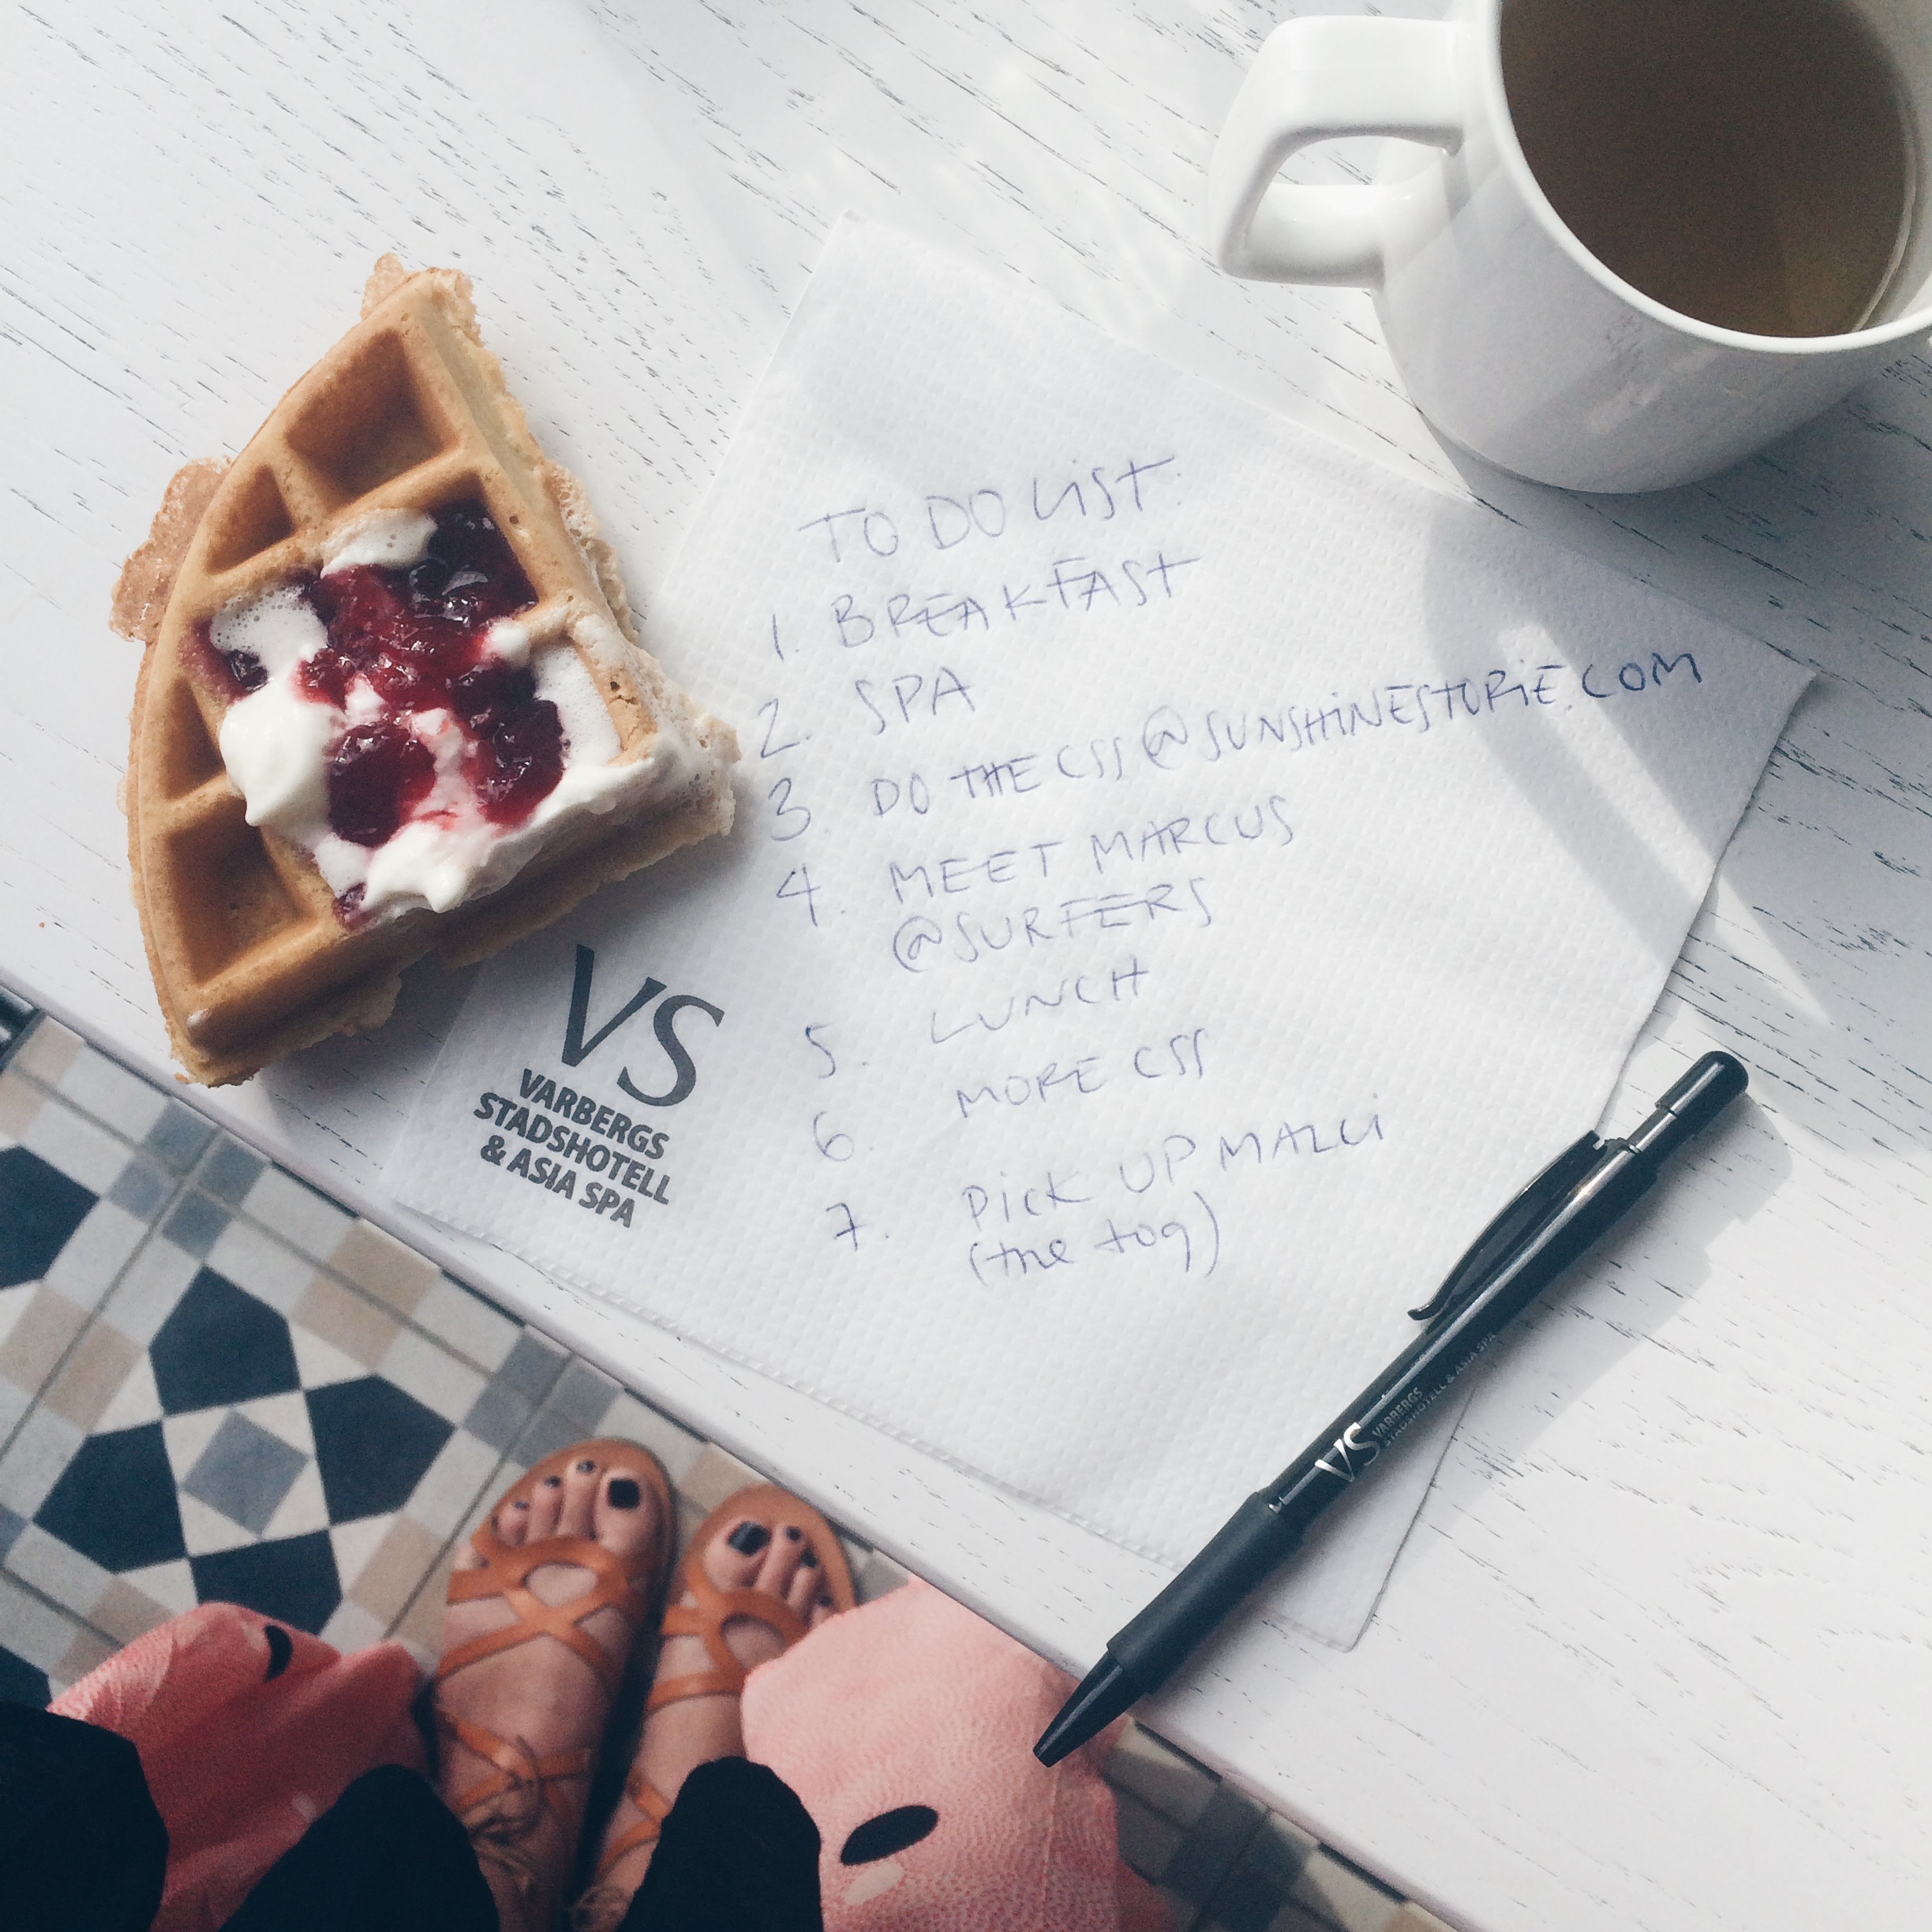 TO DO LIST:
1. BREAKFAST
2. SPA
3. DO THE CSS @SUNSHINESTORIE.COM
4. MEET MARCUS
@SURFERS
5. LUNCH
6. MORE CSS
7. PICK UP MALCI
(the tog)
VS
VARBERGS
STADSHOTELL
& ASIA SPA
VS VARBERGS
STADSHOTELL & ASIA SPA